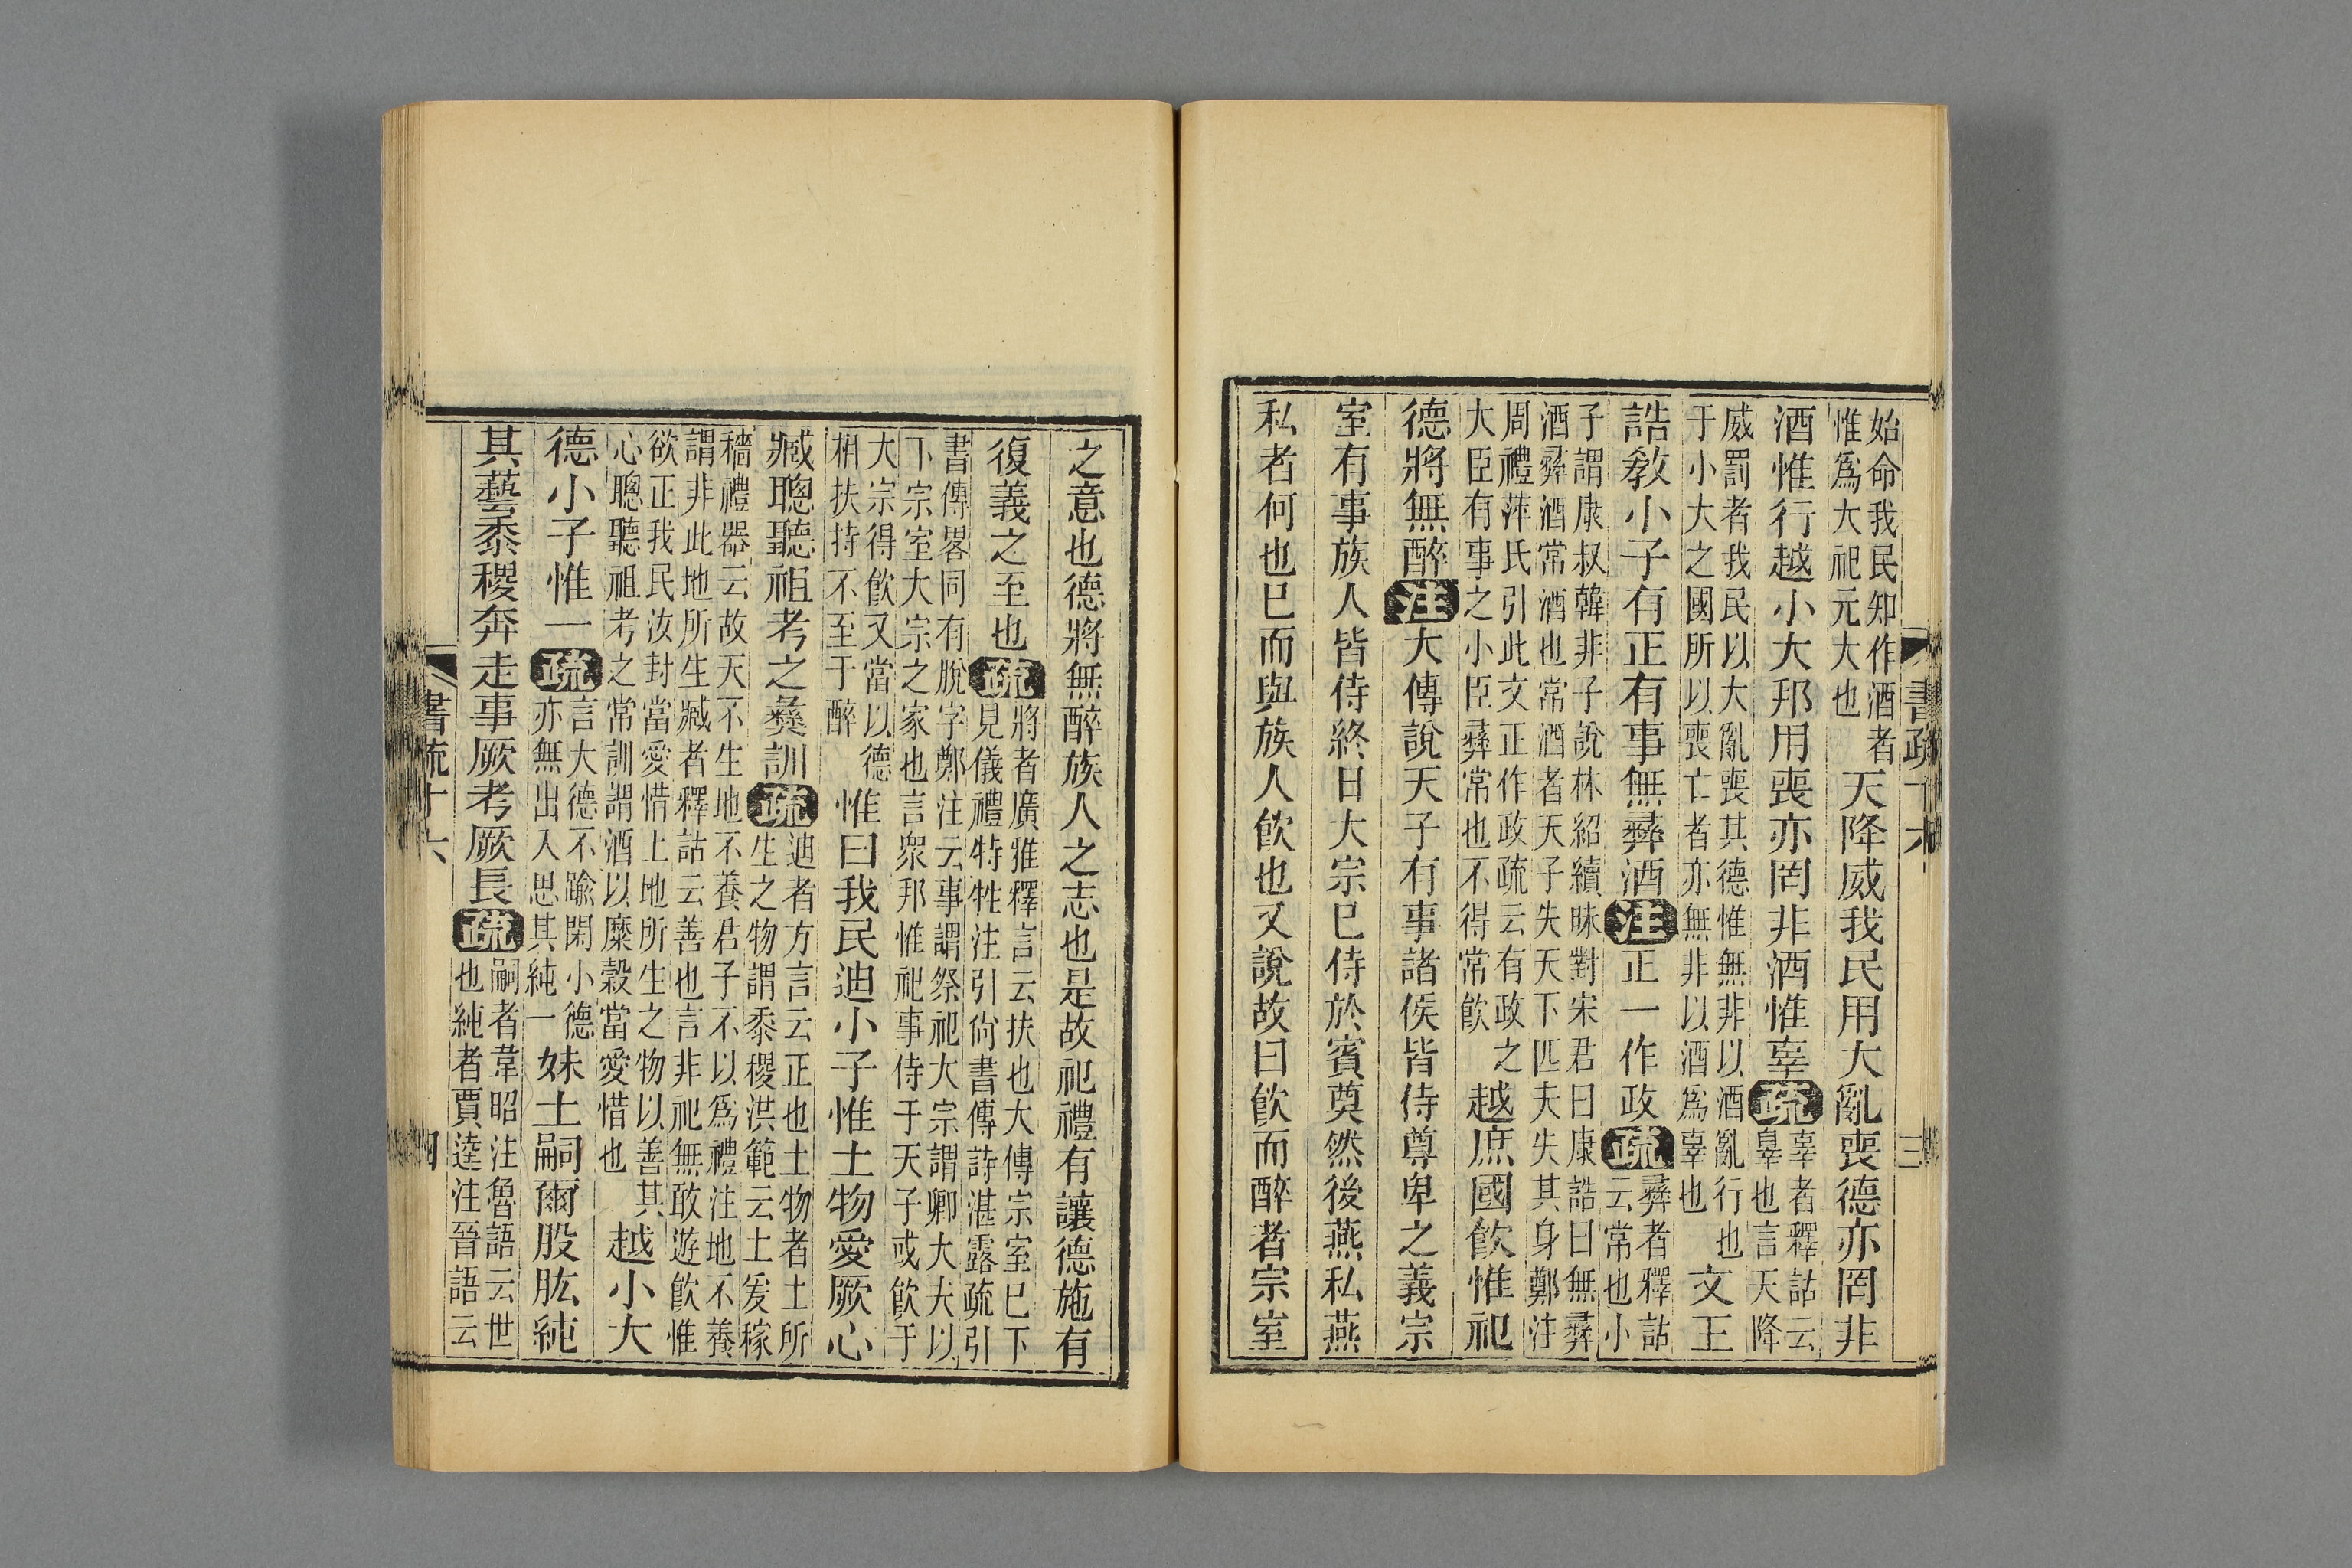 始命我民知作酒者
惟爲大祀元大也
天降威我民用大亂喪德亦罔非
酒惟行越小大邦用喪亦罔非酒惟辜疏
辜者釋詁云
辠也言天降
威罰者我民以大亂喪其德惟無非以酒亂行也
于小大之國所以喪亡者亦無非以酒爲辜也
文王
誥敎小子有正有事無彞酒注正一作政疏
彞者釋詁
云常也小
子謂康叔韓非子說林紹續昧對宋君曰康誥曰無彞
酒彞酒常酒也常酒者天子失天下匹夫失其身鄭注
周禮萍氏引此文正作政疏云有政之
大臣有事之小臣彞常也不得常飮
越庶國飮惟祀
德將無醉注大傳說天子有事諸侯皆侍尊卑之義宗
室有事族人皆侍終日大宗已侍於賓奠然後燕私燕
私者何也已而與族人飮也又說故曰飮而醉者宗室
書疏十六
三
之意也德將無醉族人之志也是故祀禮有讓德施有
復義之至也疏
將者廣雅釋言云扶也大傳宗室已下
見儀禮特牲注引尙書傳詩湛露疏引
書傳畧同有脫字鄭注云事謂祭祀大宗謂卿大夫以
下宗室大宗之家也言衆邦惟祀事侍于天子或飮于
大宗得飮又當以德
相扶持不至于醉
惟曰我民迪小子惟土物愛厥心
臧聰聽祖考之彞訓疏
迪者方言云正也土物者土所
生之物謂黍稷洪範云土爰稼
穡禮器云故天不生地不養君子不以爲禮注地不養
謂非此地所生臧者釋詁云善也言非祀無敢遊飮惟
欲正我民汝封當愛惜土地所生之物以善其
心聰聽祖考之常訓謂酒以糜穀當愛惜也
越小大
德小子惟一疏
言大德不踰閑小德
亦無出入思其純一
妹土嗣爾股肱純
其藝黍稷奔走事厥考厥長疏
嗣者韋昭注魯語云世
也純者賈逵注晉語云
書疏十六
四